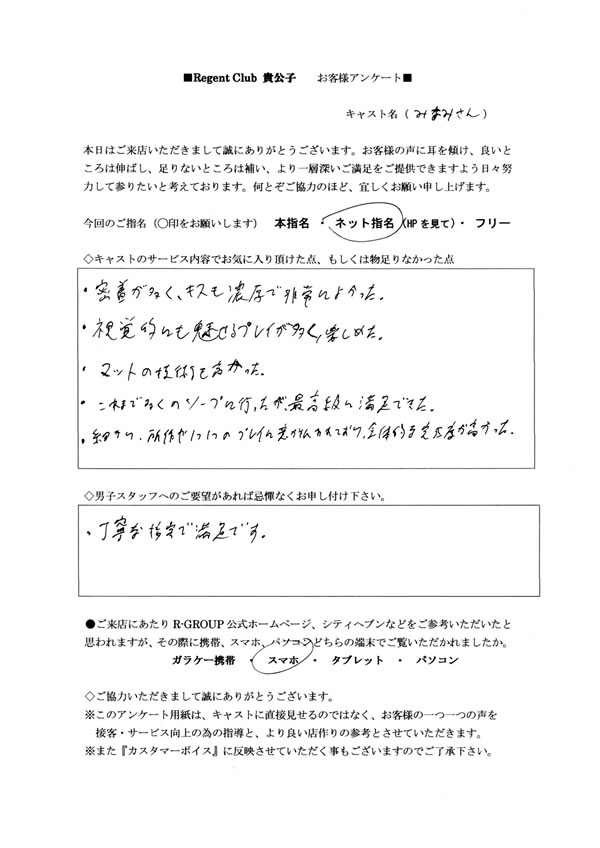 ■Regent Club 貴公子　お客様アンケート■
キャスト名（みなみさん）
本日はご来店いただきまして誠にありがとうございます。お客様の声に耳を傾け、良いと
ころは伸ばし、足りないところは補い、より一層深いご満足をご提供できますよう日々努
力して参りたいと考えております。何とぞご協力のほど、宜しくお願い申し上げます。
今回のご指名（〇印をお願いします）　本指名　・　ネット指名（HPを見て）・　フリー
◇キャストのサービス内容でお気に入り頂けた点、もしくは物足りなかった点
・密着が多く、キスも濃厚で非常によかった。
・視覚的にも魅せるプレイが多く、楽しめた。
・マットの技術も高かった。
・これまで多くのソープに行ったが、最高級に満足できた。
・細かい所作や1つ1つのプレイに意が払われており、全体的な完成度が高かった。
◇男子スタッフへのご要望があれば忌憚なくお申し付け下さい。
・丁寧な接客で満足です。
●ご来店にあたり R-GROUP 公式ホームページ、シティヘブンなどをご参考いただいたと
思われますが、その際に携帯、スマホ、パソコンどちらの端末でご覧いただかれましたか。
ガラケー携帯　・　スマホ　・　タブレット　・　パソコン
◇ご協力いただきまして誠にありがとうございます。
※このアンケート用紙は、キャストに直接見せるのではなく、お客様の一つ一つの声を
接客・サービス向上の為の指導と、より良い店作りの参考とさせていただきます。
※また『カスタマーボイス』に反映させていただく事もございますのでご了承下さい。